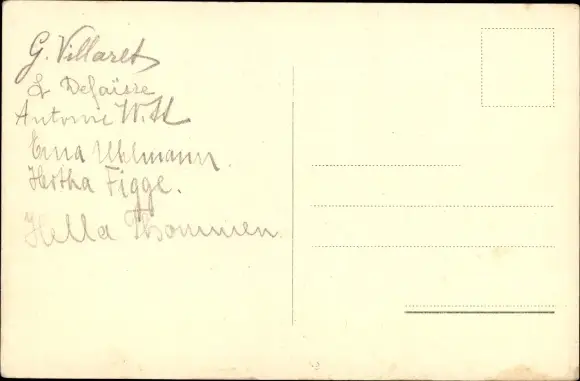 G. Villaret
Defaisse
Antonie Witt
Erna Uhlmann.
Hertha Figge.
Hella Thommen